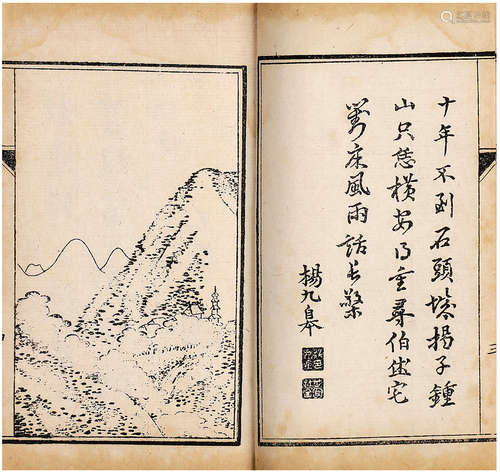 十年不到石頭城揚子鍾
山只恁橫安得重尋伯仲宅
對床風雨話長檠
楊九皋
三